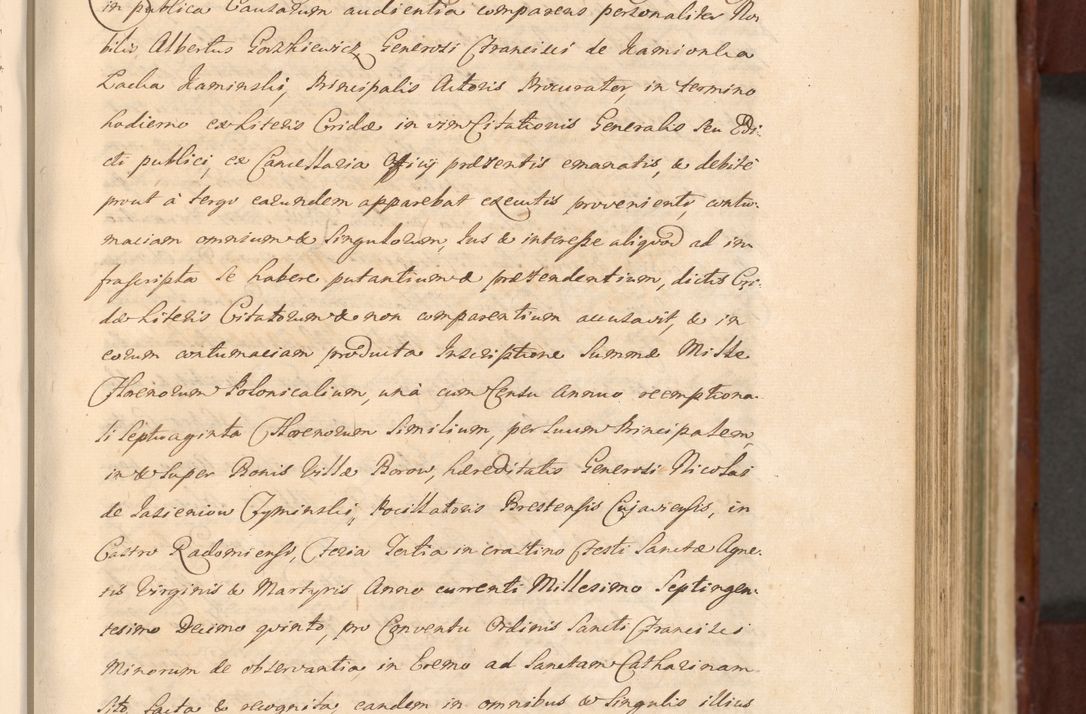 in publica Causarum audientia comparens personaliter No-
bilis Albertus Gorzkiewicz, Generosi Francisci de Kamionka
Lacka Kaminski, Principalis Actoris Procurator, in termino
hodierno ex literis Cridæ in vim Citationis Generalis seu Edi-
cti publici, ex Cancellaria Officij præsentis emanatis, & debitè
prout à tergo earundem apparebat executis provenienti, contu-
maciam omnium & singulorum, Ius & interesse aliquod ad in-
frascripta se habere putantium & prætendentium, dictis Cri-
dæ literis Citatorum & non comparentium accusavit, & in
eorum contumaciam producta Inscriptione Summæ Mille
Florenorum Polonicalium, unà cum Censu annuo reemptiona-
li Septuaginta Florenorum similium, per suum Principalem,
in & super Bonis Villæ Borow, hæreditatis Generosi Nicolai
de Jasieniow Czyminski, Pocillatoris Brestensis Cujaviensis, in
Castro Radomiensi, Feria Tertia in crastino Festi Sanctæ Agne-
tis Virginis & Martyris Anno currenti Millesimo Septingen-
tesimo Decimo quinto, pro Conventu Ordinis Sancti Francisci
Minorum de observantia, in Eremo ad Sanctam Catharinam
sito, facta & recognita, eandem in omnibus & singulis illius